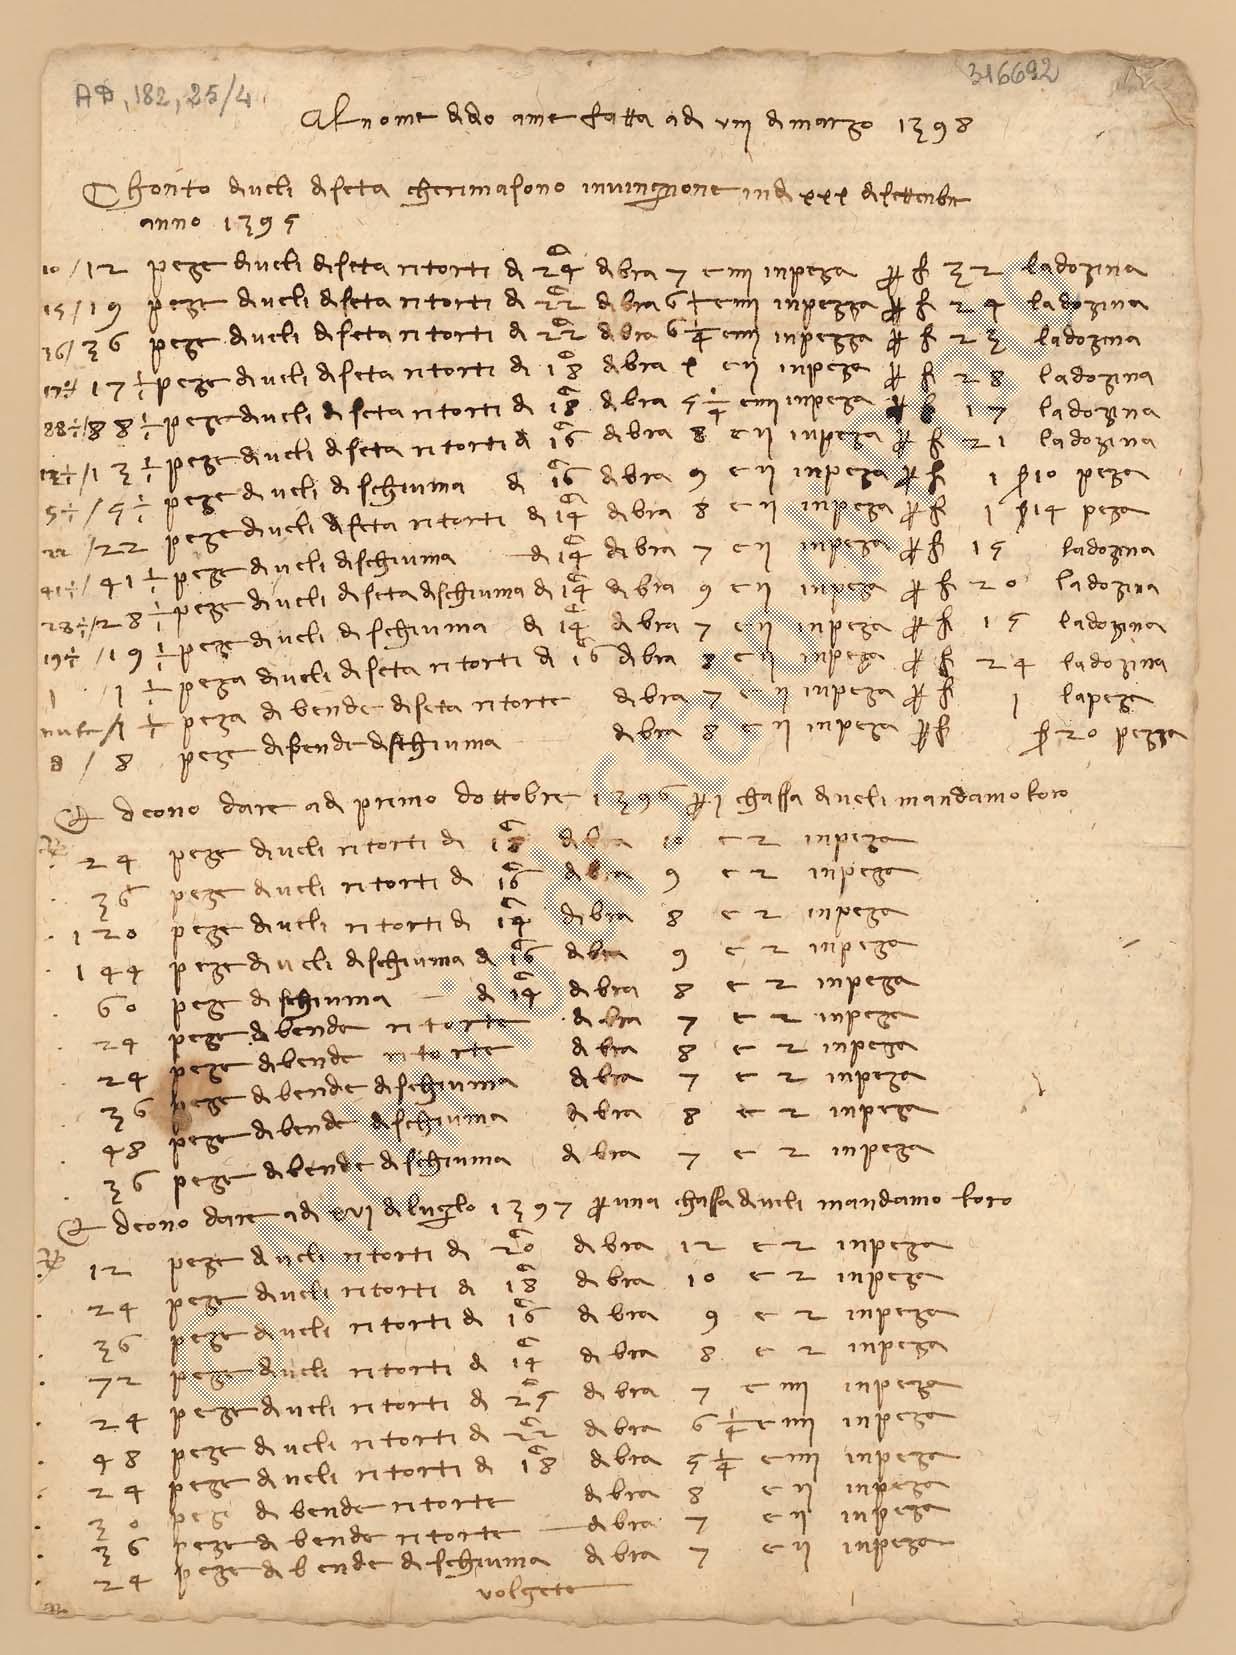 AD, 182, 25/4
316692
Al nome di dio ame fatta adi viii di marzo 1398
Chonto di veli di seta che rimasono in vinegione in di xxx di settenbre
anno 1395
10 / 12 peze di veli di seta ritorti di 24 di bra 7 e iiii in peza per f 32 la dozina
15 / 19 peze di veli di seta ritorti di 22 di bra 6 e iiii in pezza per f 24 la dozina
36 / 36 peze di veli di seta ritorti di 22 di bra 6 1/4 e iiii in pezza per f 23 la dozina
17 1/2 peze di veli di seta ritorti di 18 di bra x e ii in peza per f 28 la dozina
88 1/2 / 88 1/2 peze di veli di seta ritorti di 18 di bra 5 1/4 e iiii in peza per f 17 la dozina
13 1/2 / 13 1/2 peze di veli di seta ritorti di 16 di bra 8 e ii in peza per f 21 la dozina
5 1/2 / 5 1/2 peze di veli di schiuma di 16 di bra 9 e ii in peza per f 1 s 10 peza
22 / 22 peze di veli di seta ritorti di 14 di bra 8 e ii in peza per f 1 s 14 peza
41 1/2 / 41 1/2 peze di veli di schiuma di 14 di bra 7 e ii in peza per f 15 la dozina
28 1/2 / 28 1/2 peze di veli di seta di schiuma di 14 di bra 9 e ii in peza per f 20 la dozina
19 1/2 / 19 1/2 peze di veli di schiuma di 14 di bra 7 e ii in peza per f 15 la dozina
1 / 1 1/2 peza di veli di seta ritorti di 16 di bra 8 e ii in peza per f 24 la dozina
/ 1 1/2 peza di bende di seta ritorte di bra 7 e ii in peza per f 1 la peze
8 / 8 peze di bende di schiuma di bra 8 e ii in peza per f s 20 pezza
E deono dare adi primo d ottobre 1396 per i chassa di veli mandamo loro
24 peze di veli ritorti di 18 di bra 10 e 2 in peza
36 peze di veli ritorti di 16 di bra 9 e 2 in peza
120 peze di veli ritorti di 14 di bra 8 e 2 in peza
144 peze di veli di schiuma di 16 di bra 9 e 2 in peza
60 peze di schiuma di 14 di bra 8 e 2 in peza
24 peze di bende ritorte di bra 7 e 2 in peza
24 peze di bende ritorte di bra 8 e 2 in peza
36 peze di bende di schiuma di bra 7 e 2 in peza
48 peze di bende di schiuma di bra 8 e 2 in peza
36 peze di bende di schiuma di bra 7 e 2 in peza
E deono dare adi xvi di luglo 1397 per una chassa di veli mandamo loro
12 peze di veli ritorti di 20 di bra 12 e 2 in peza
24 peze di veli ritorti di 18 di bra 10 e 2 in peza
36 peze di veli ritorti di 16 di bra 9 e 2 in peza
72 peze di veli ritorti di 14 di bra 8 e 2 in peza
24 peze di veli ritorti di 25 di bra 7 e iiii in peza
48 peze di veli ritorti di 22 di bra 6 1/4 e iiii in peza
24 peze di veli ritorti di 18 di bra 5 1/4 e iiii in peza
30 peze di bende ritorte di bra 8 e ii in peza
36 peze di bende ritorte di bra 7 e ii in peza
24 peze di bende di schiuma di bra 7 e ii in peza
volgete